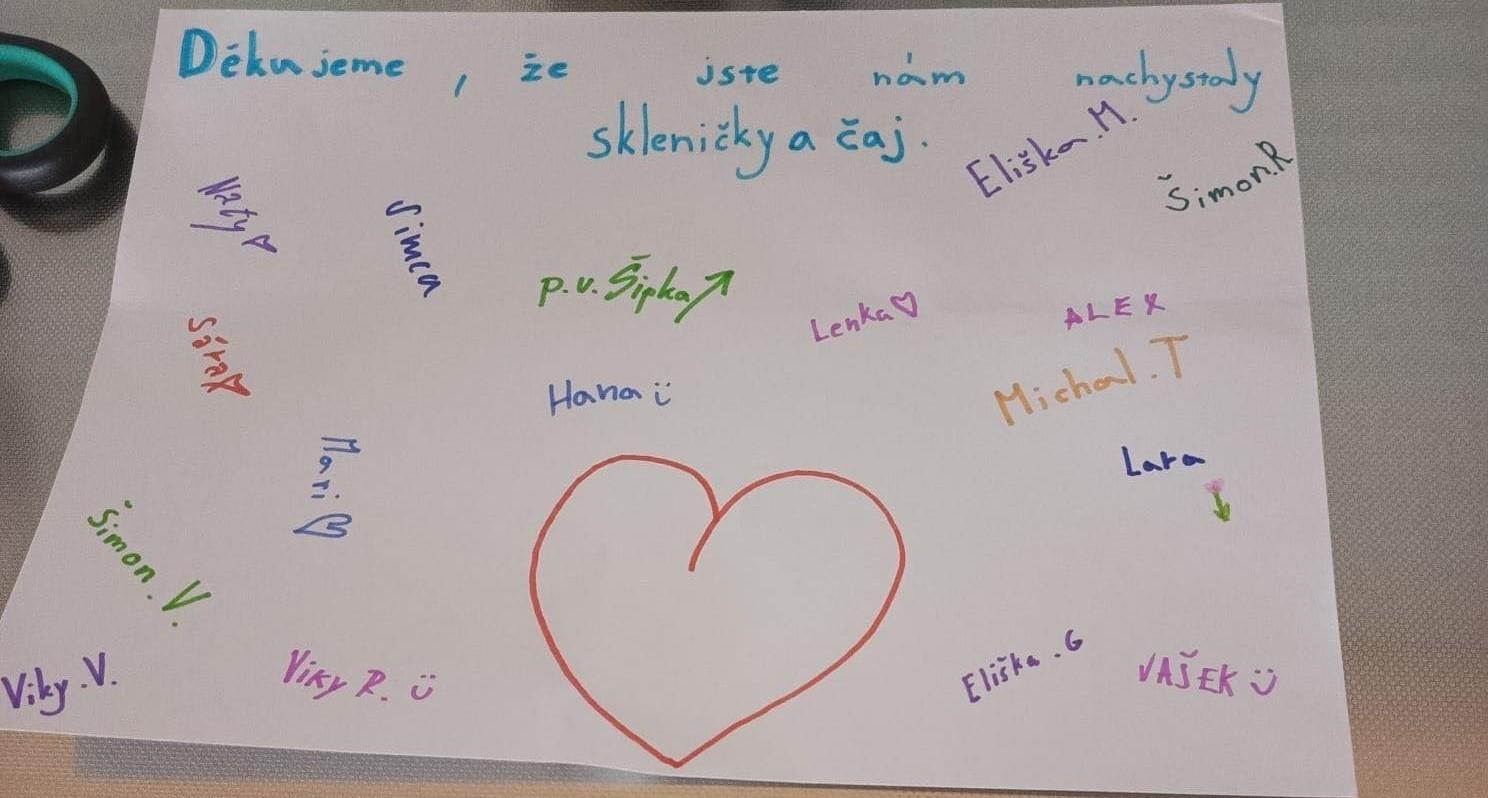 Děkujeme, že jste nám nachystaly
skleničky a čaj.
Eliška.M.
Šimon.R
Naty
Simča
p.v. Šipka
Lenka
ALEX
Sára
Hana
Michal.T
Mari
Lara
Šimon.V.
Viky.V.
Viky R.
Eliška.G
VAŠEK